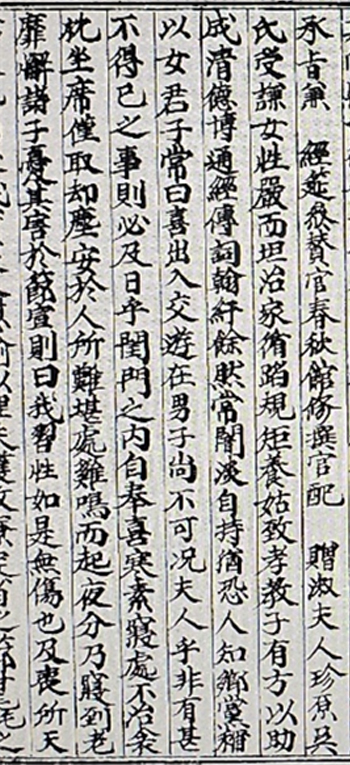 承旨兼 經筵參贊官春秋館修撰官配 贈淑夫人珍原吳
氏受謙女性嚴而坦治家脩蹈規矩養姑致孝敎子有方以助
成淸德博通經傳詞翰紆餘然常闇淡自持猶恐人知鄕黨稱
以女君子常曰喜出入交遊在男子尙不可况夫人乎非有甚
不得已之事則必及日乎閨門之內自奉喜寒素寢處不冶衾
枕坐席僅取却塵安於人所難堪處雞鳴而起夜分乃寢到老
靡懈諸子憂其害於節宣則曰我習性如是無傷也及喪所天